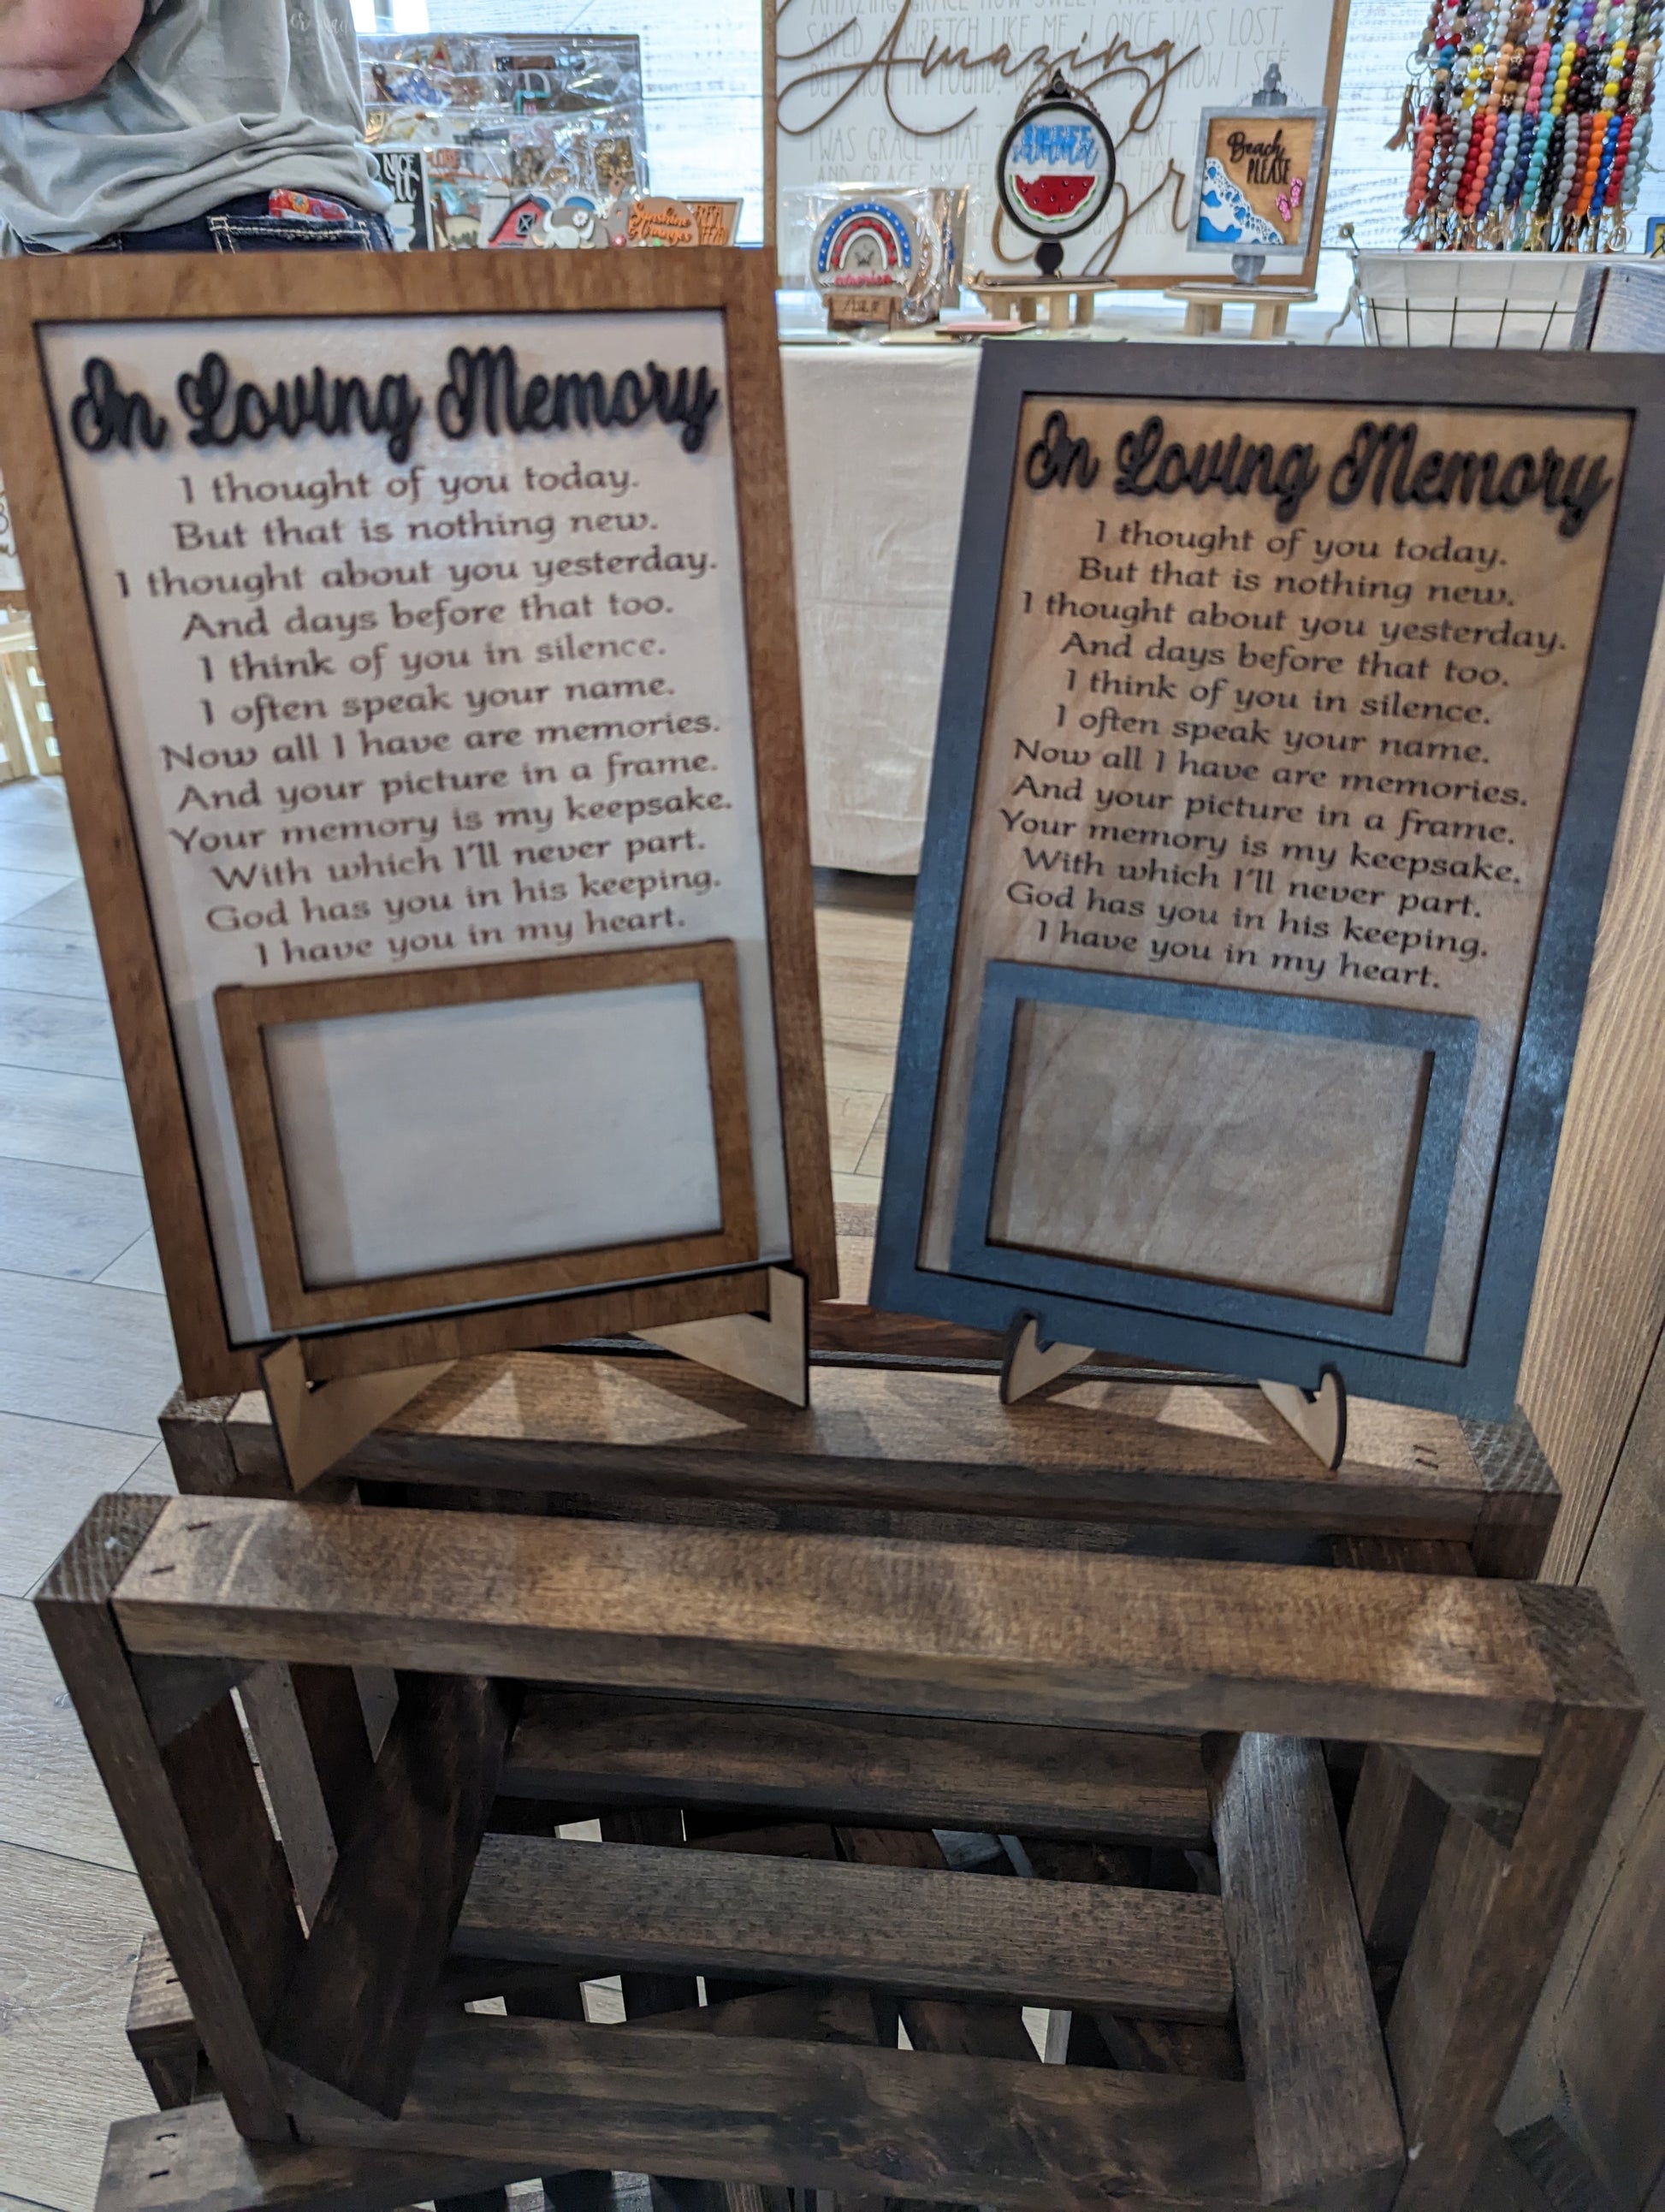 Amazing
Grace
AMAZING GRACE HOW SWEET THE
SAVED A WRETCH LIKE ME. I ONCE WAS LOST,
NOW I SEE
WAS GRACE THAT
AND GRACE MY
SUMMER
Beach
PLEASE
NICE
Sunshine
america
In Loving Memory
I thought of you today.
But that is nothing new.
I thought about you yesterday.
And days before that too.
I think of you in silence.
I often speak your name.
Now all I have are memories.
And your picture in a frame.
Your memory is my keepsake.
With which I'll never part.
God has you in his keeping.
I have you in my heart.
In Loving Memory
I thought of you today.
But that is nothing new.
I thought about you yesterday.
And days before that too.
I think of you in silence.
I often speak your name.
Now all I have are memories.
And your picture in a frame.
Your memory is my keepsake.
With which I'll never part.
God has you in his keeping.
I have you in my heart.